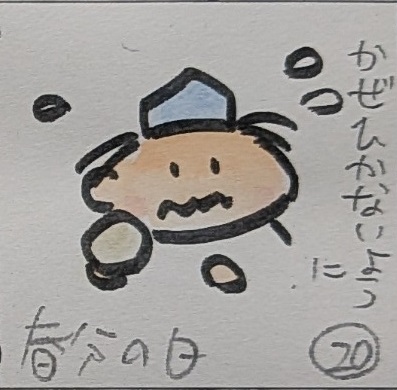 かぜひかないよう
に
春分の日
20